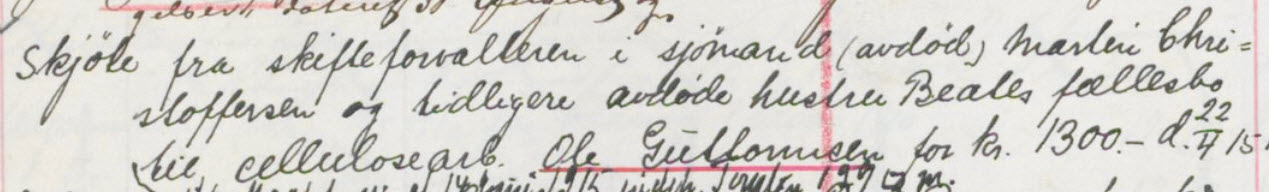 Skjöte fra skifteforvalteren i sjömand (avdöd) Martin Chri=
stoffersen og tidligere avdöde hustru Beates fællesbo
til cellulosearb. Ole Guttormsen for kr. 1300.- d. 22/4 15.